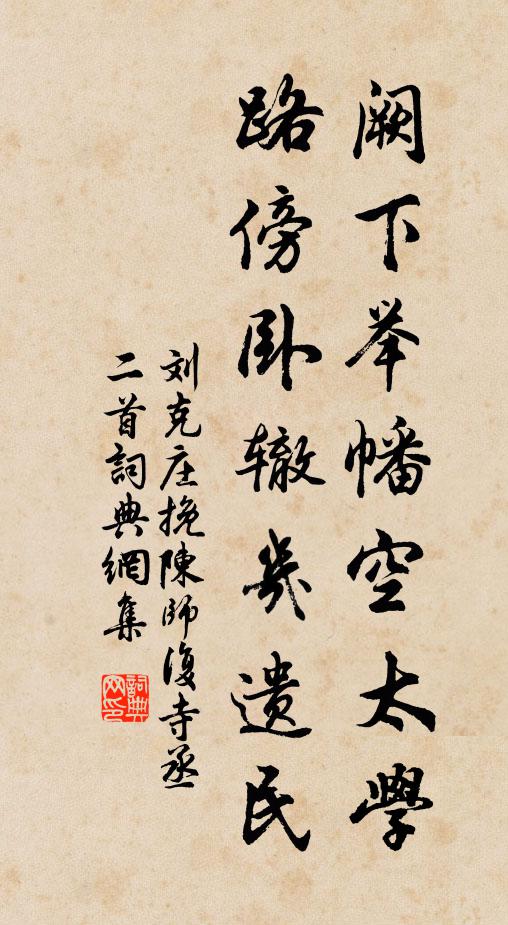 阙下举幡空太學
路傍卧辙幾遗民
刘克庄挽陳師復寺丞
二首詞典網集
詞典
网印